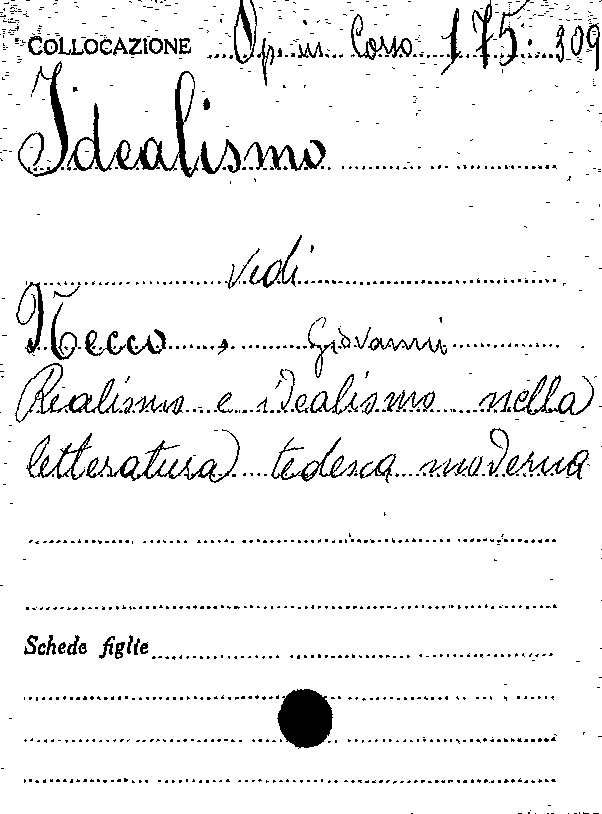 COLLOCAZIONE Op. in Corso 175.309
Idealismo
Vedi
Necco, Giovanni
Realismo e idealismo nella
letteratura tedesca moderna
Schede figlie